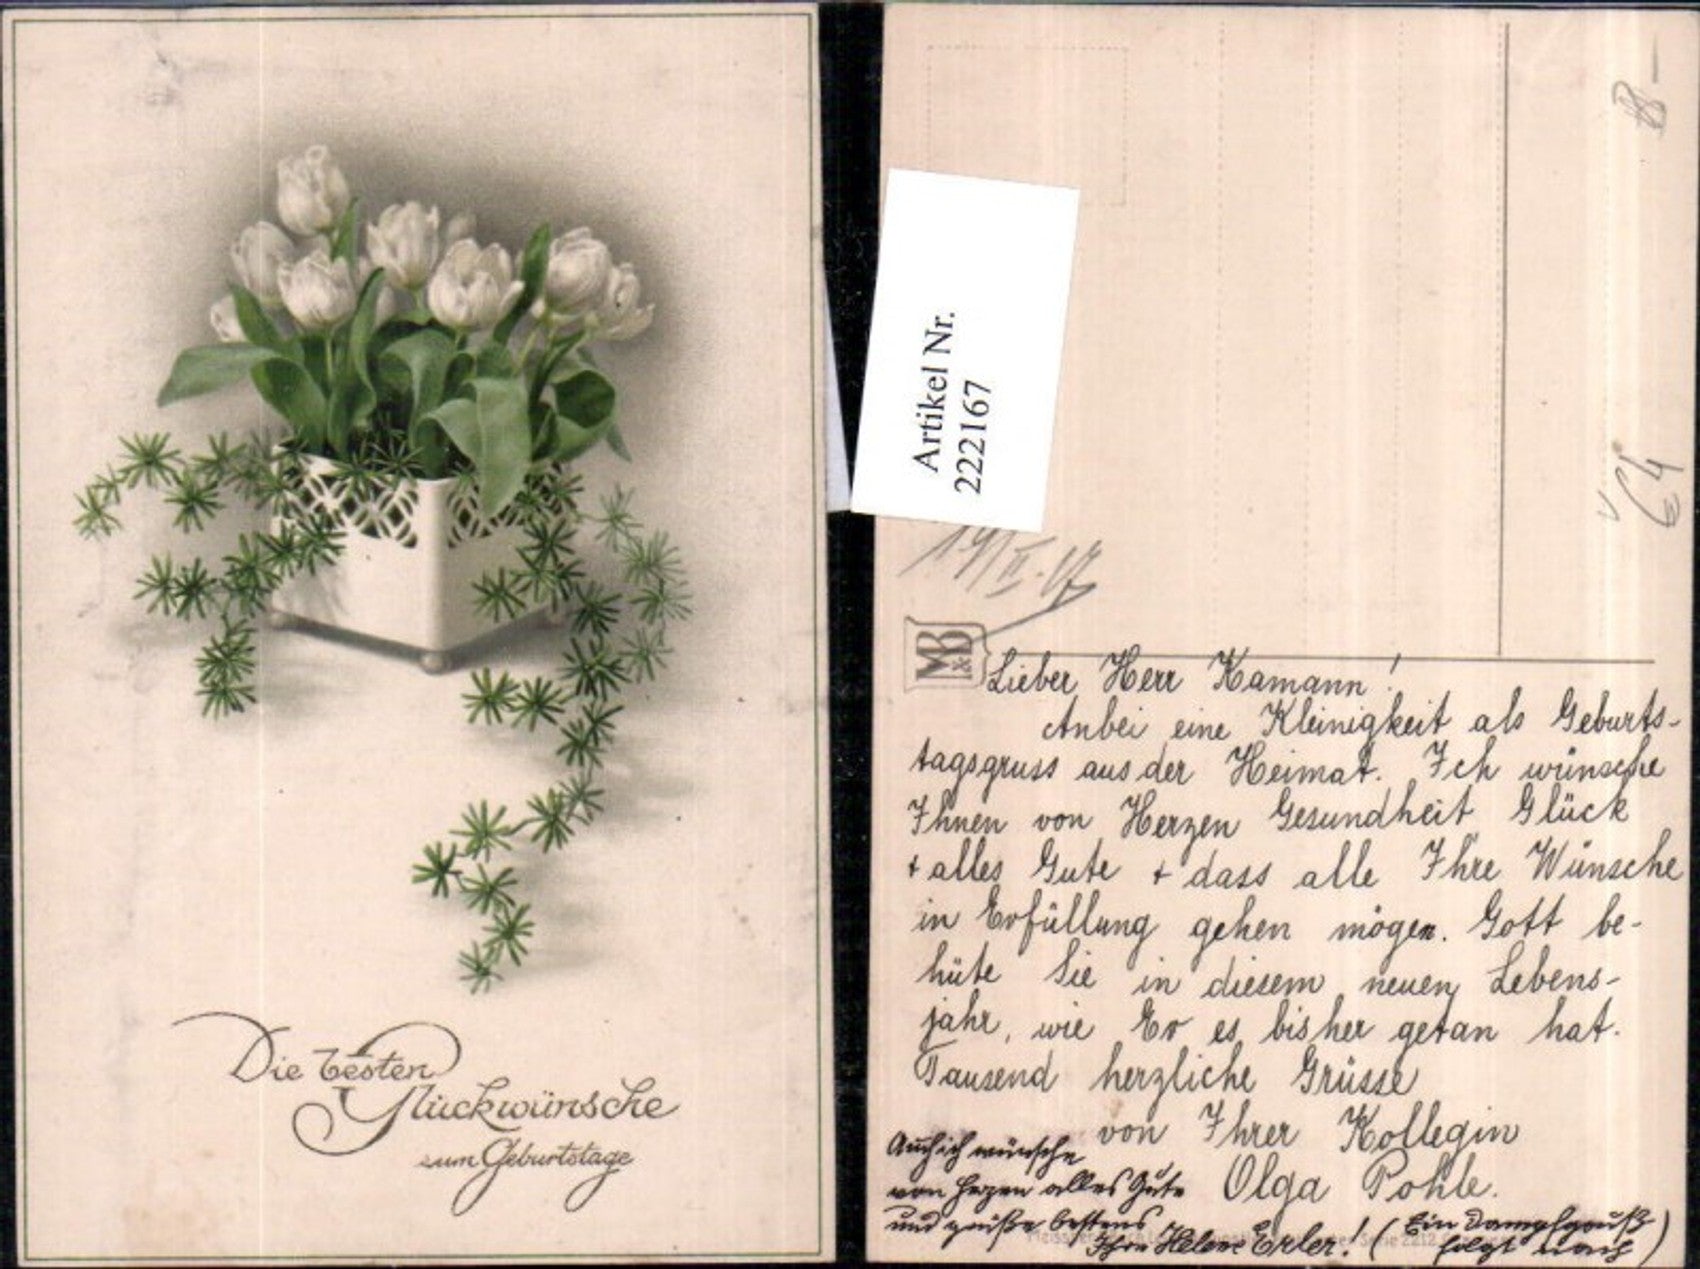 Die besten
Glückwünsche
zum Geburtstage
Artikel Nr.
222167
19/II.17
M&B
Lieber Herr Kamann!
Anbei eine Kleinigkeit als Geburts-
tagsgruss aus der Heimat. Ich wünsche
Ihnen von Herzen Gesundheit Glück
+ alles Gute + dass alle Ihre Wünsche
in Erfüllung gehen mögen. Gott be-
hüte Sie in diesem neuen Lebens-
jahr, wie Er es bisher getan hat.
Tausend herzliche Grüsse
von Ihrer Kollegin
Olga Pohle.
Auch ich wünsche
von Herzen alles Gute
und grüße bestens
Ihre Helene Erler! (Ein Dampfgruß
folgt noch)